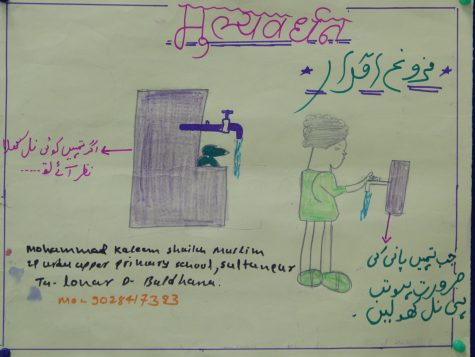 मुल्यवर्धन
فروغ اقدار
اگر تمہیں کوئی نل کھلا
نظر آئے تو.....
جب تمہیں پانی کی
ضرورت ہو تب
ہی نل کھولیں.
Mohammad Kaleem Shaikh Muslim
ZP urdu upper primary school, Sultanpur
Tu- Lonar D- Buldhana.
Mo:- 9028417383